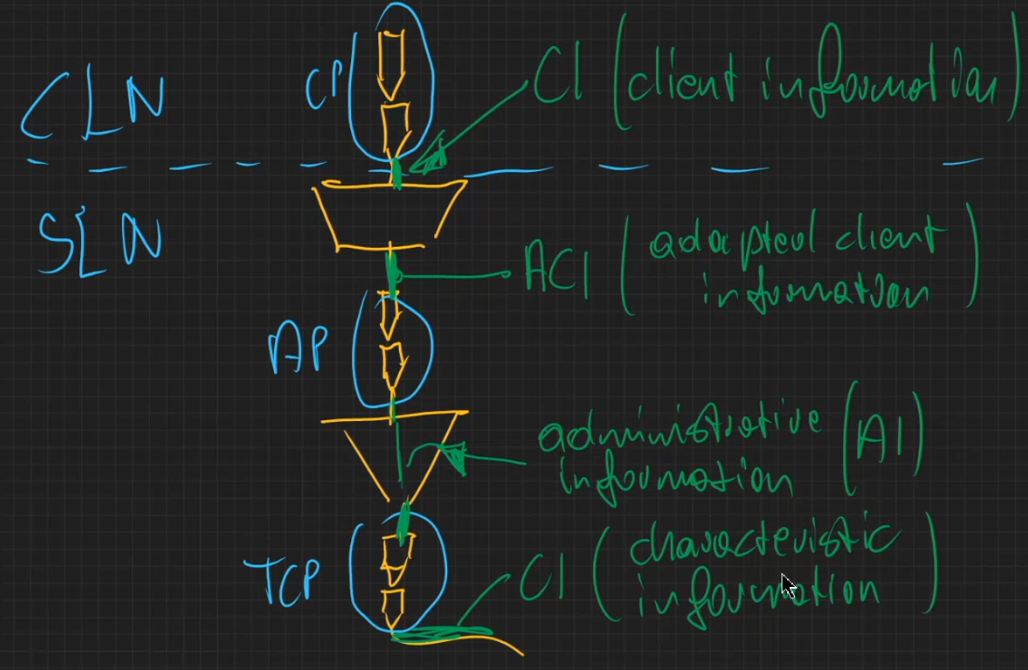 CLN
CP
CI (client information)
SLN
ACI (adapted client
information)
AP
administrative (AI)
information
TCP
CI (characteristic
information)